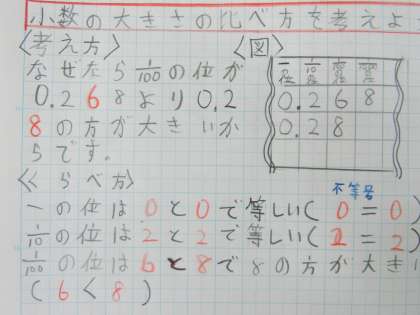 小数の大きさの比べ方を考えよ
〈考え方〉
なぜなら1/100の位が
0.268より0.2
8の方が大きいか
らです。
〈図〉
一の位 1/10の位 1/100の位
0.268
0.28
〈くらべ方〉
不等号
一の位は0と0で等しい(0=0)
1/10の位は2と2で等しい(2=2)
1/100の位は6と8で8の方が大きい
(6<8)